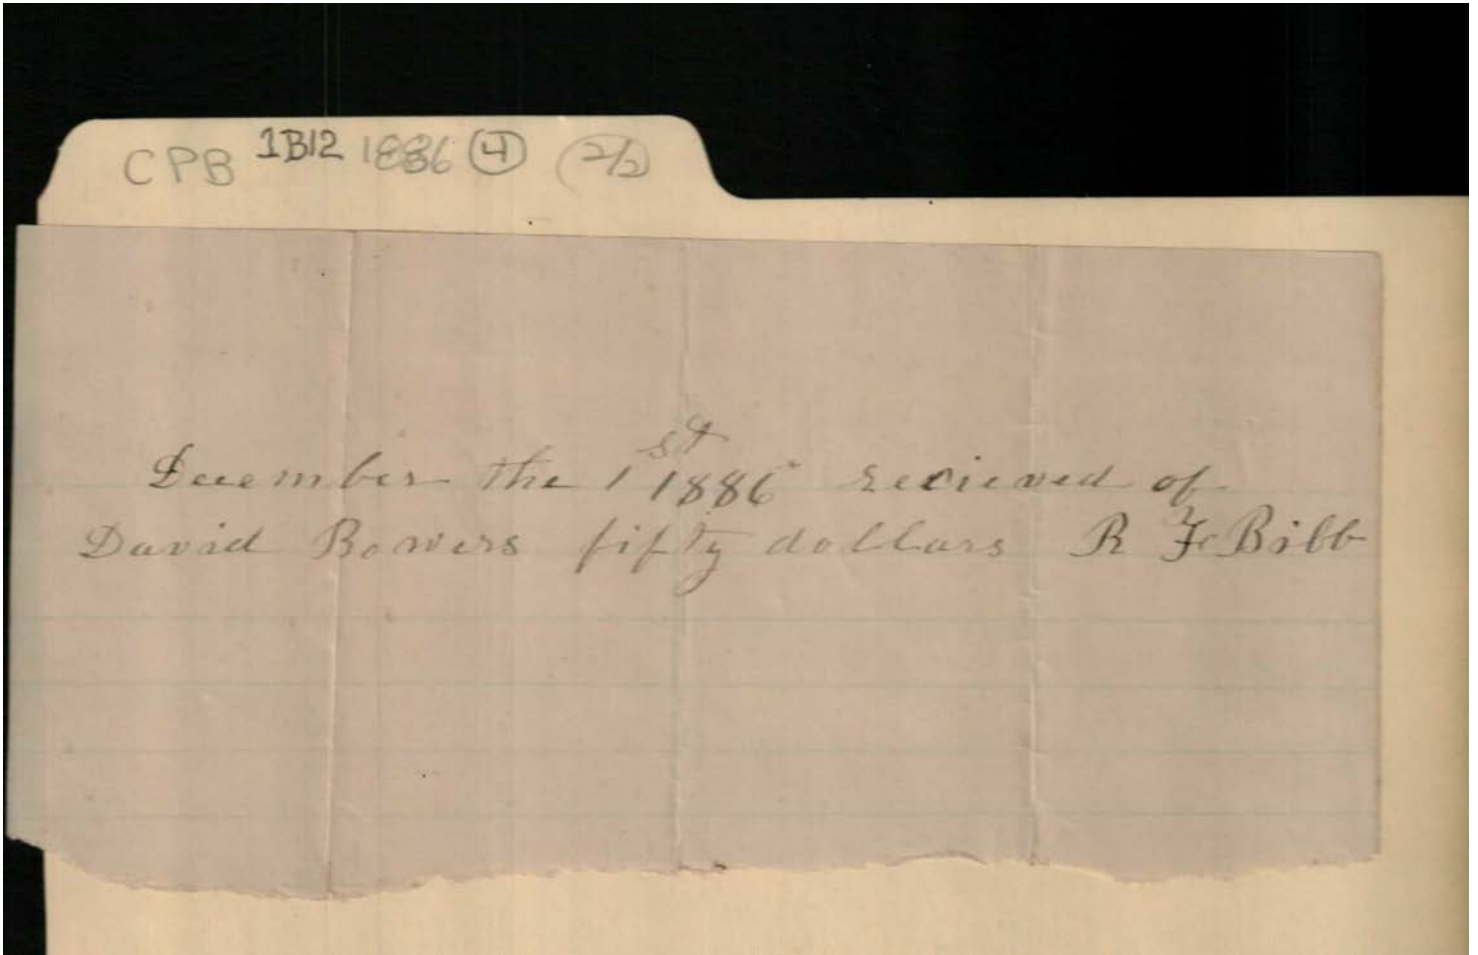 CPB 1B12 1886 4 (2/2)
December the 1st 1886 recieved of
David Bowers fifty dollars R F Bibb